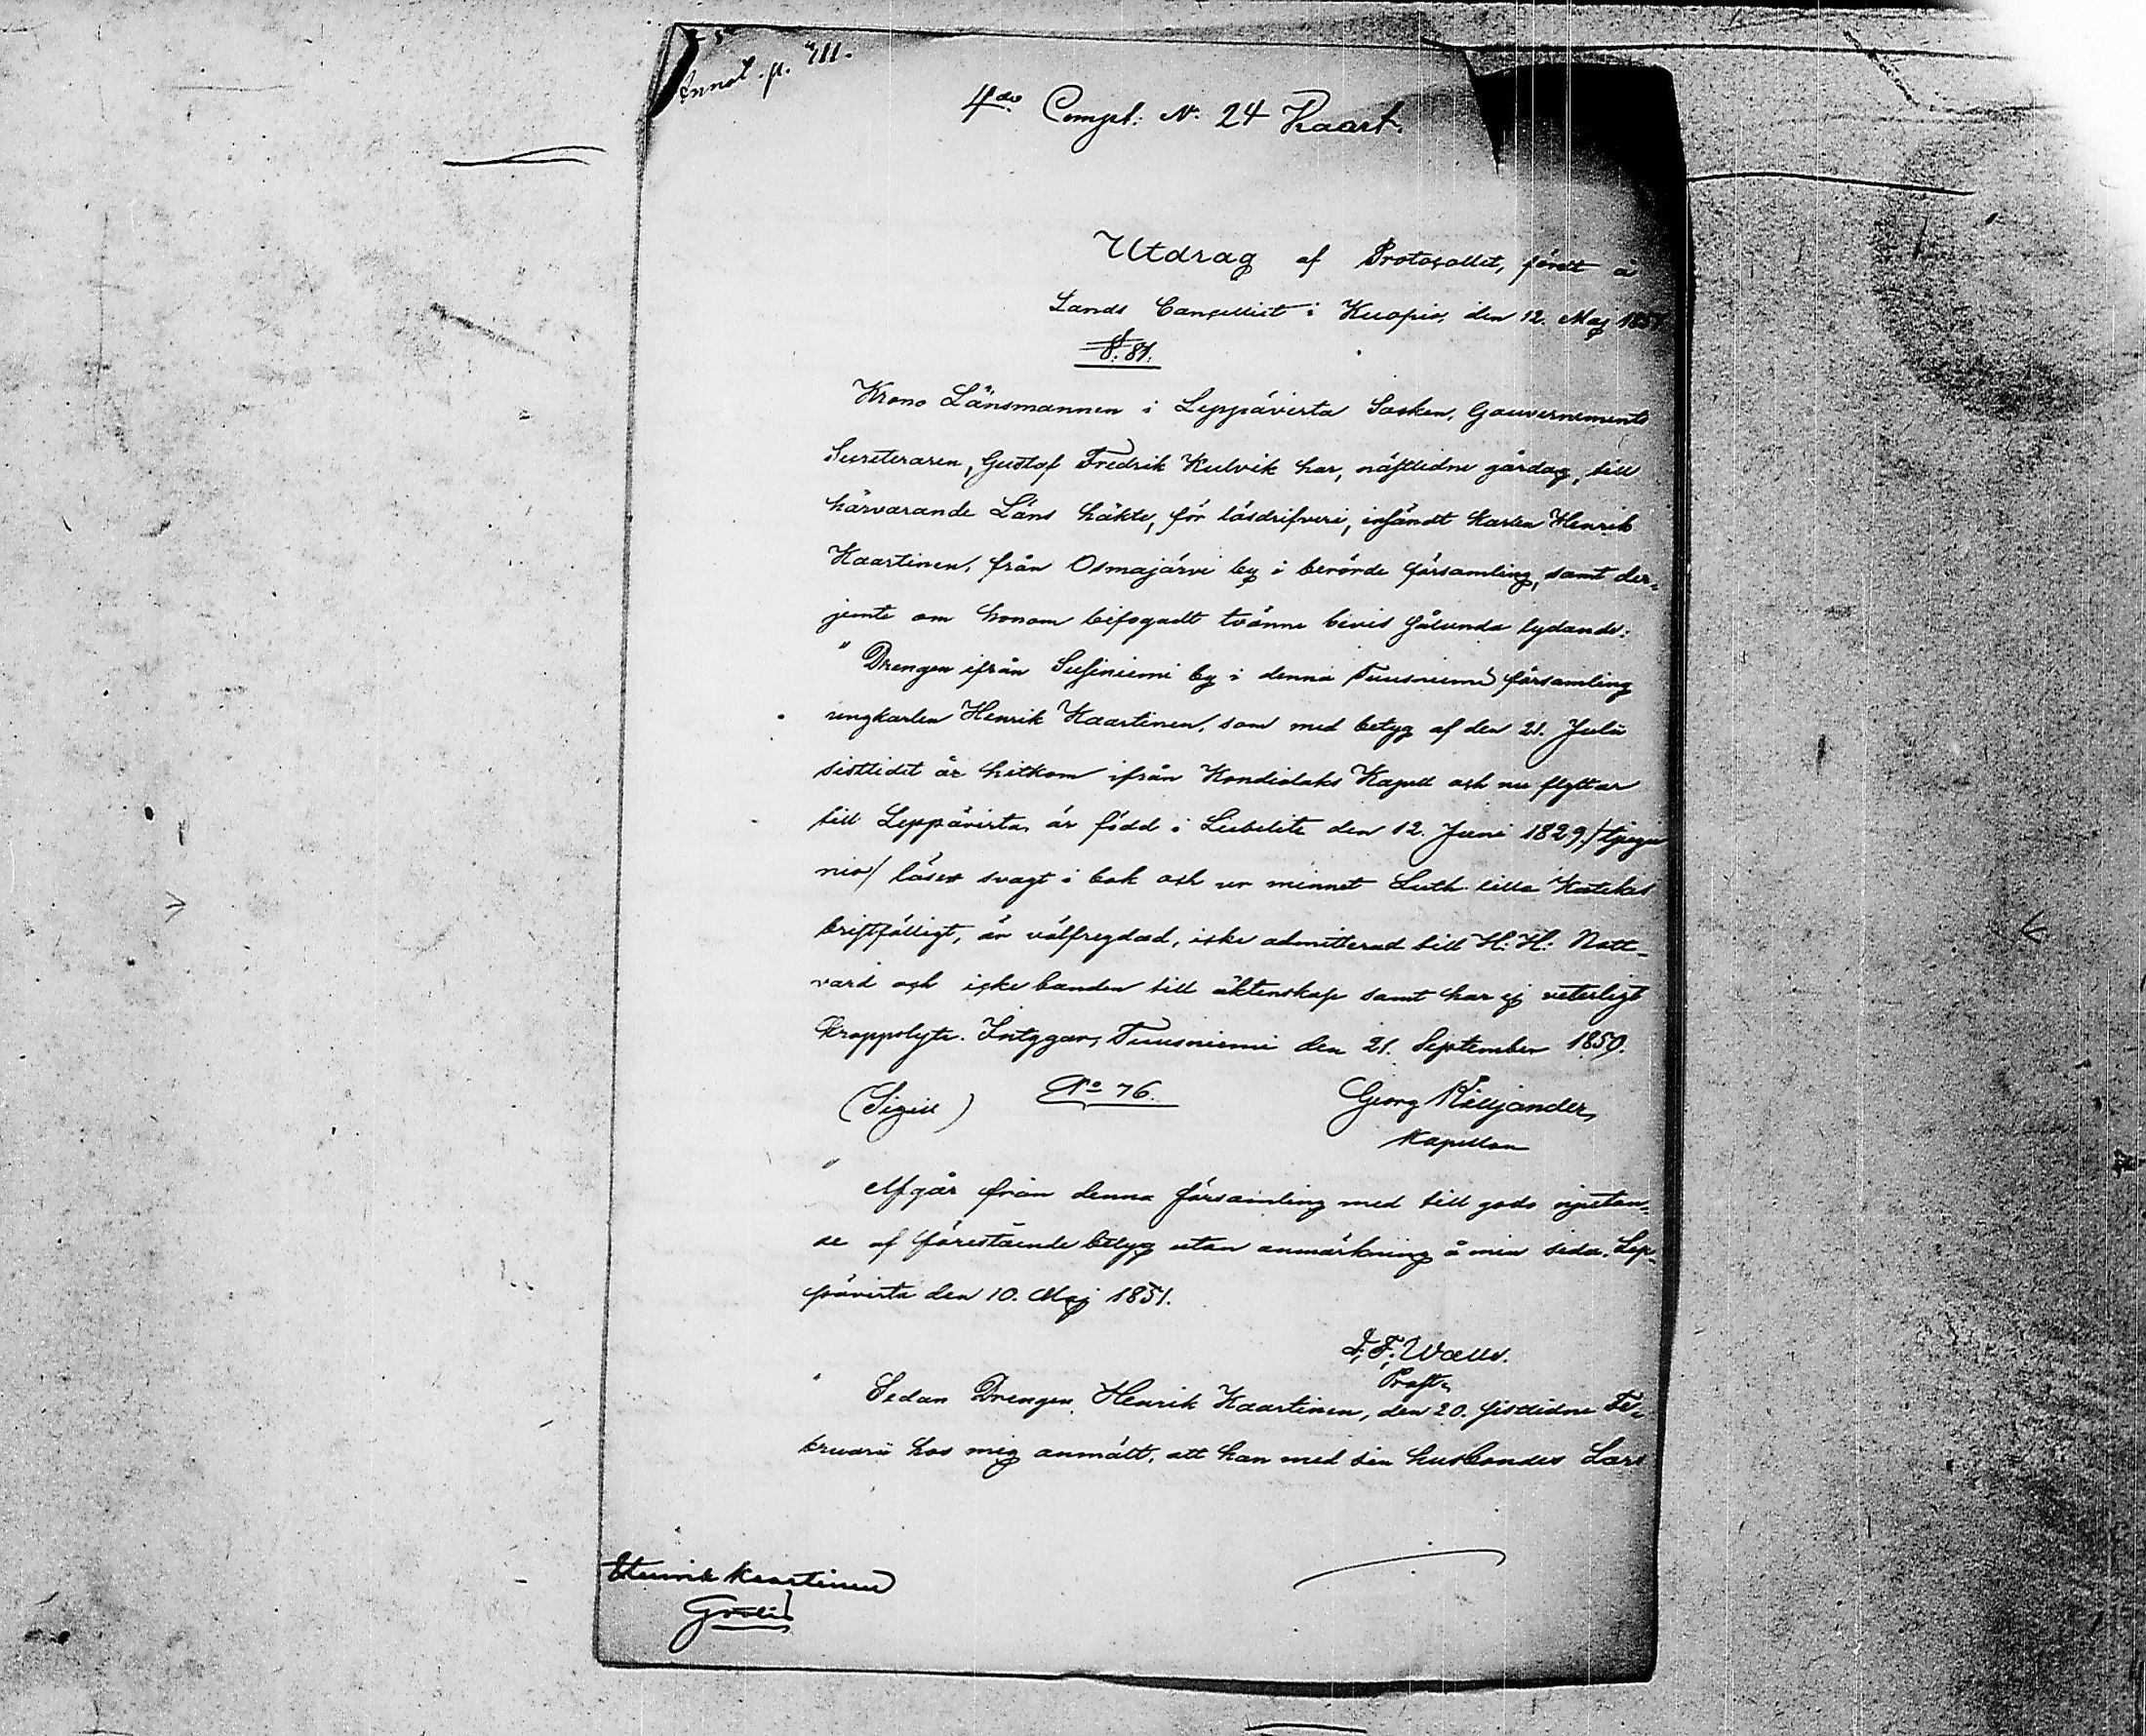 Annot. p. 711.
4de Compt: N: 24 Kaart.
Utdrag af Protocollet, fördt å
Lands Cancelliet i Kuopio, den 12. Maj 1851
§. 81.
Krono Länsmannen i Leppävirta Socken, Gouvernements
Secreteraren, Gustaf Fredrik Kulvik har, nästlidne gårdag, till
härvarande Läns häkte, för lösdrifveri, insändt karlen Henrik
Kaartinen, från Osmajärvi by i berörde församling, samt der-
jemte om honom bifogadt tvänne bevis sålunda lydande:
" Drengen ifrån Susiniemi by i denna Tuusniemi församling
ungkarlen Henrik Kaartinen, som med betyg af den 21. Julii
sistlidet år hitkom ifrån Kondiolaks Kapell och nu flyttar
till Leppävirta, är född i Libelits den 12. Juni 1829,/tjugu
nio/ läser svagt i bok och ur minnet Luth. lilla Kateches
bristfälligt, är välfregdad, icke admitterad till H. H. Natt-
vard och icke bunden till äktenskap samt har ej veterligt
kroppslyte. Intygar, Tuusniemi den 21. September 1850.
(Sigill) No 76. Georg Kiljander,
Kapellan
" Afgår från denna församling med till godo njutan-
de af förestående betyg utan anmärkning å min sida. Lep-
pävirta den 10. Maj 1851.
F. F. Walle.
Prost.
" Sedan Drengen Henrik Kaartinen, den 20. sistlidne Fe-
bruarii hos mig anmält, att han med sin husbondes Lars
Henrik Kaartinen
Gratis